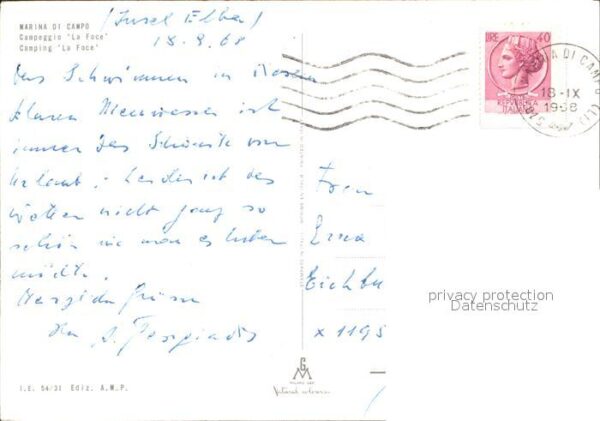 MARINA DI CAMPO
Campeggio 'La Foce'
Camping 'La Foce'
(Insel Elba)
18.9.68
Das Schwimmen in diesem
klaren Meerwasser ist
immer das Schönste vom
Urlaub. Leider ist das
Wetter nicht ganz so
schön wie man es haben
möchte.
Herzliche Grüsse
Frau
Erna
Eichbu
x 1195
LIRE 40
REPUBBLICA
ITALIANA
18-IX
1968
privacy protection
Datenschutz
MILANO
I.E. 54/31 Ediz. A.M.P.